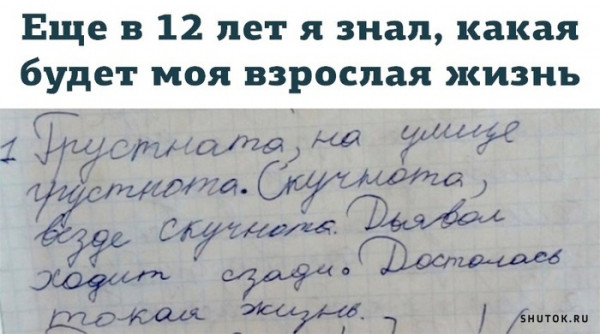 Еще в 12 лет я знал, какая
будет моя взрослая жизнь
1 Грустната, на улице
грустнота. Скучнота,
везде скучнота. Дьявол
ходит сзади. Досталась
такая жизнь.
SHUTOK.RU